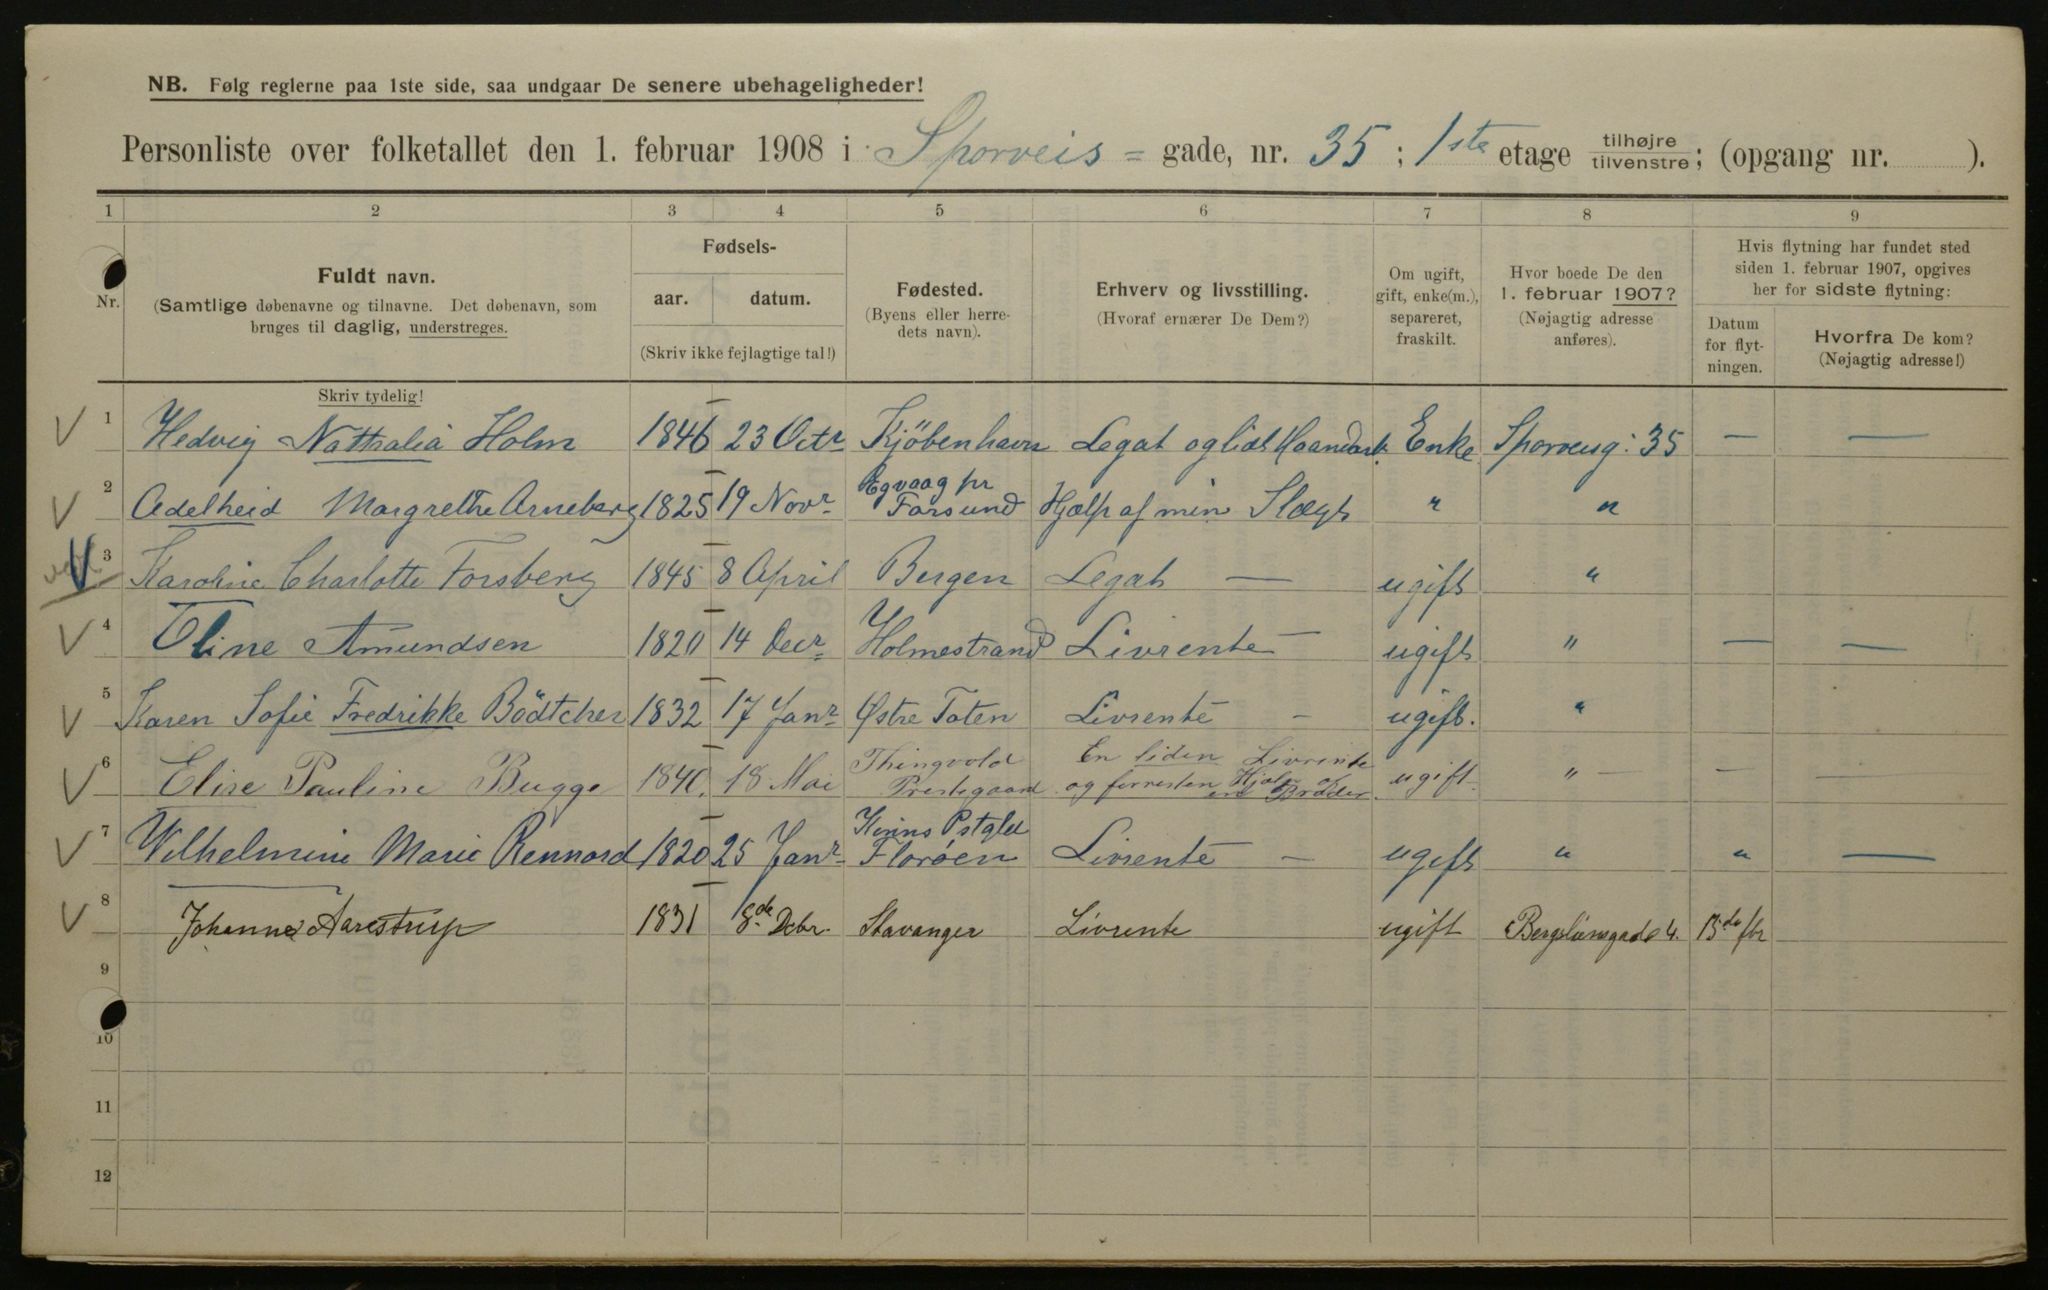 NB. Følg reglerne paa 1ste side, saa undgaar De senere ubehageligheder!
Personliste over folketallet den 1. februar 1908 i Sporveis = gade, nr. 35 ; 1ste etage tilhøjre tilvenstre; (opgang nr. ).
1 2 3 4 5 6 7 8 9
Nr.
Fuldt navn.
(Samtlige døbenavne og tilnavne. Det døbenavn, som
bruges til daglig, understreges.
Skriv tydelig!
Fødsels-
aar. datum.
(Skriv ikke fejlagtige tal!)
Fødested.
(Byens eller herre-
dets navn).
Erhverv og livsstilling.
(Hvoraf ernærer De Dem?)
Om ugift,
gift, enke(m.),
separeret,
fraskilt.
Hvor boede De den
1. februar 1907?
(Nøjagtig adresse
anføres).
Hvis flytning har fundet sted
siden 1. februar 1907, opgives
her for sidste flytning:
Datum
for flyt-
ningen.
Hvorfra De kom?
(Nøjagtig adresse!)
1 Hedvig Nathalia Holm 1846 23 Octr Kjöbenhavn Legat og lidt Haandarb. Enke Sporveisg: 35 — —
2 Adelheid Margrethe Arneberg 1825 19 Novr Egvaag pr Farsund Hjælp af min Slægt " "
3 Karoline Charlotte Forsberg 1845 8 April Bergen Legat — ugift "
4 Oline Amundsen 1820 14 Decr Holmestrand Livrente — ugift " — —
5 Karen Sofie Fredrikke Bödtcher 1832 17 Janr Østre Toten Livrente — ugift. "
6 Elise Pauline Bugge 1840. 18 Mai Thingvold Prestegaard En liden Livrente og forresten Hjælp af en Broder. ugift " — — —
7 Wilhelmine Marie Rennord 1820 25 Janr Kinns Pstgld Florøen Livrente — ugift " " —
8 Johanne Aarestrup 1831 8de Debr. Stavanger Livrente ugift Bergsliensgade 4. 15de fbr
9
10
11
12